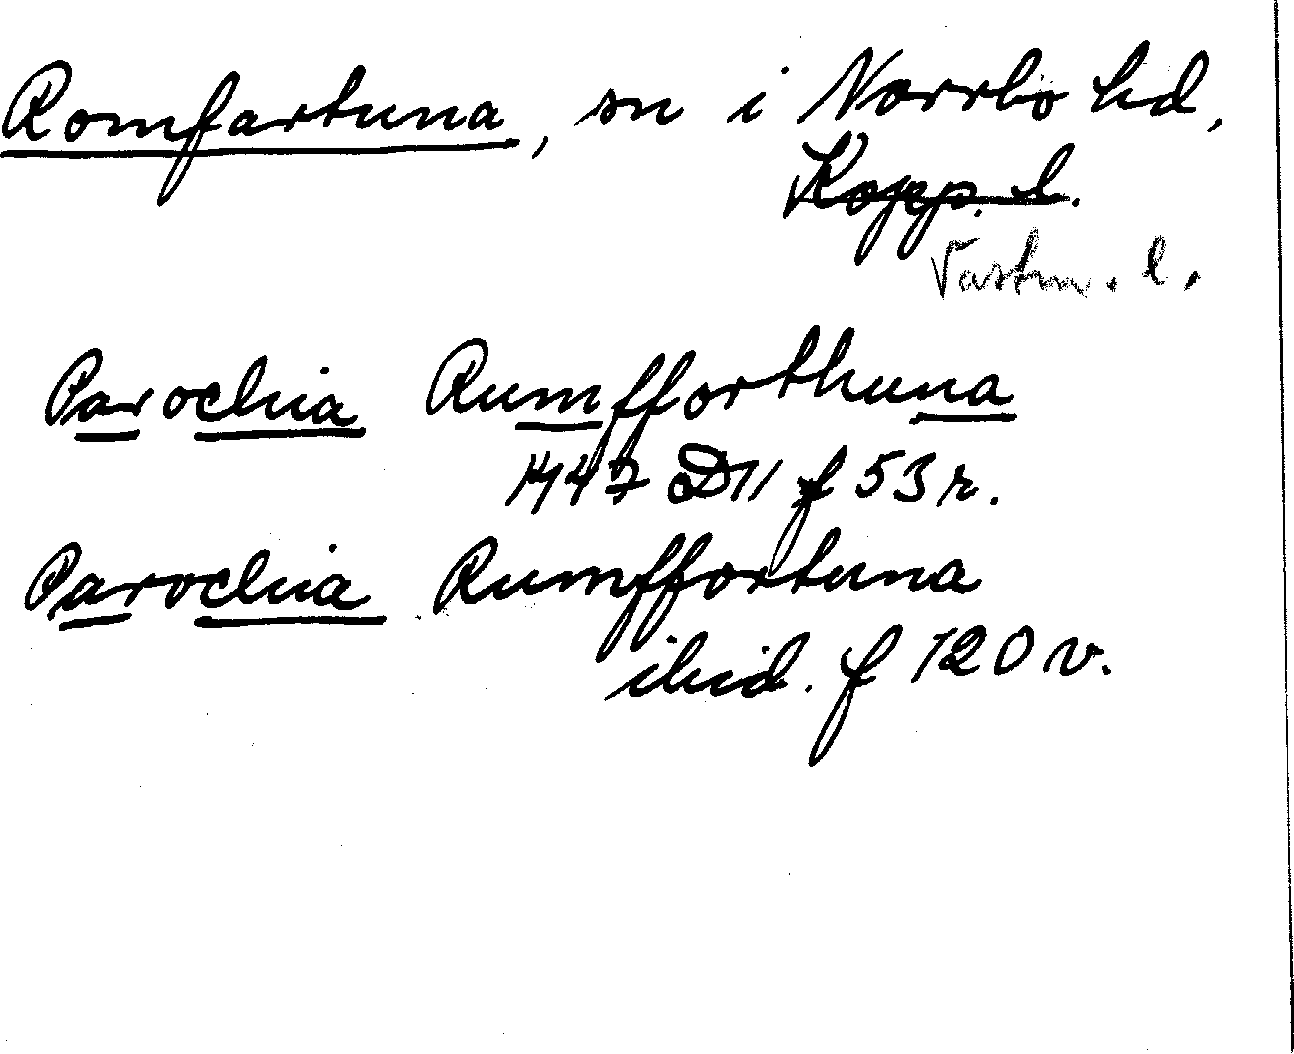 Romfartuna, sn i Norrbo hd,
Kopp. l.
Vastm. l.
Parochia Rumfforthuna
1447 D11 f 53 r.
Parochia Rumffortuna
ibid. f 120 v.